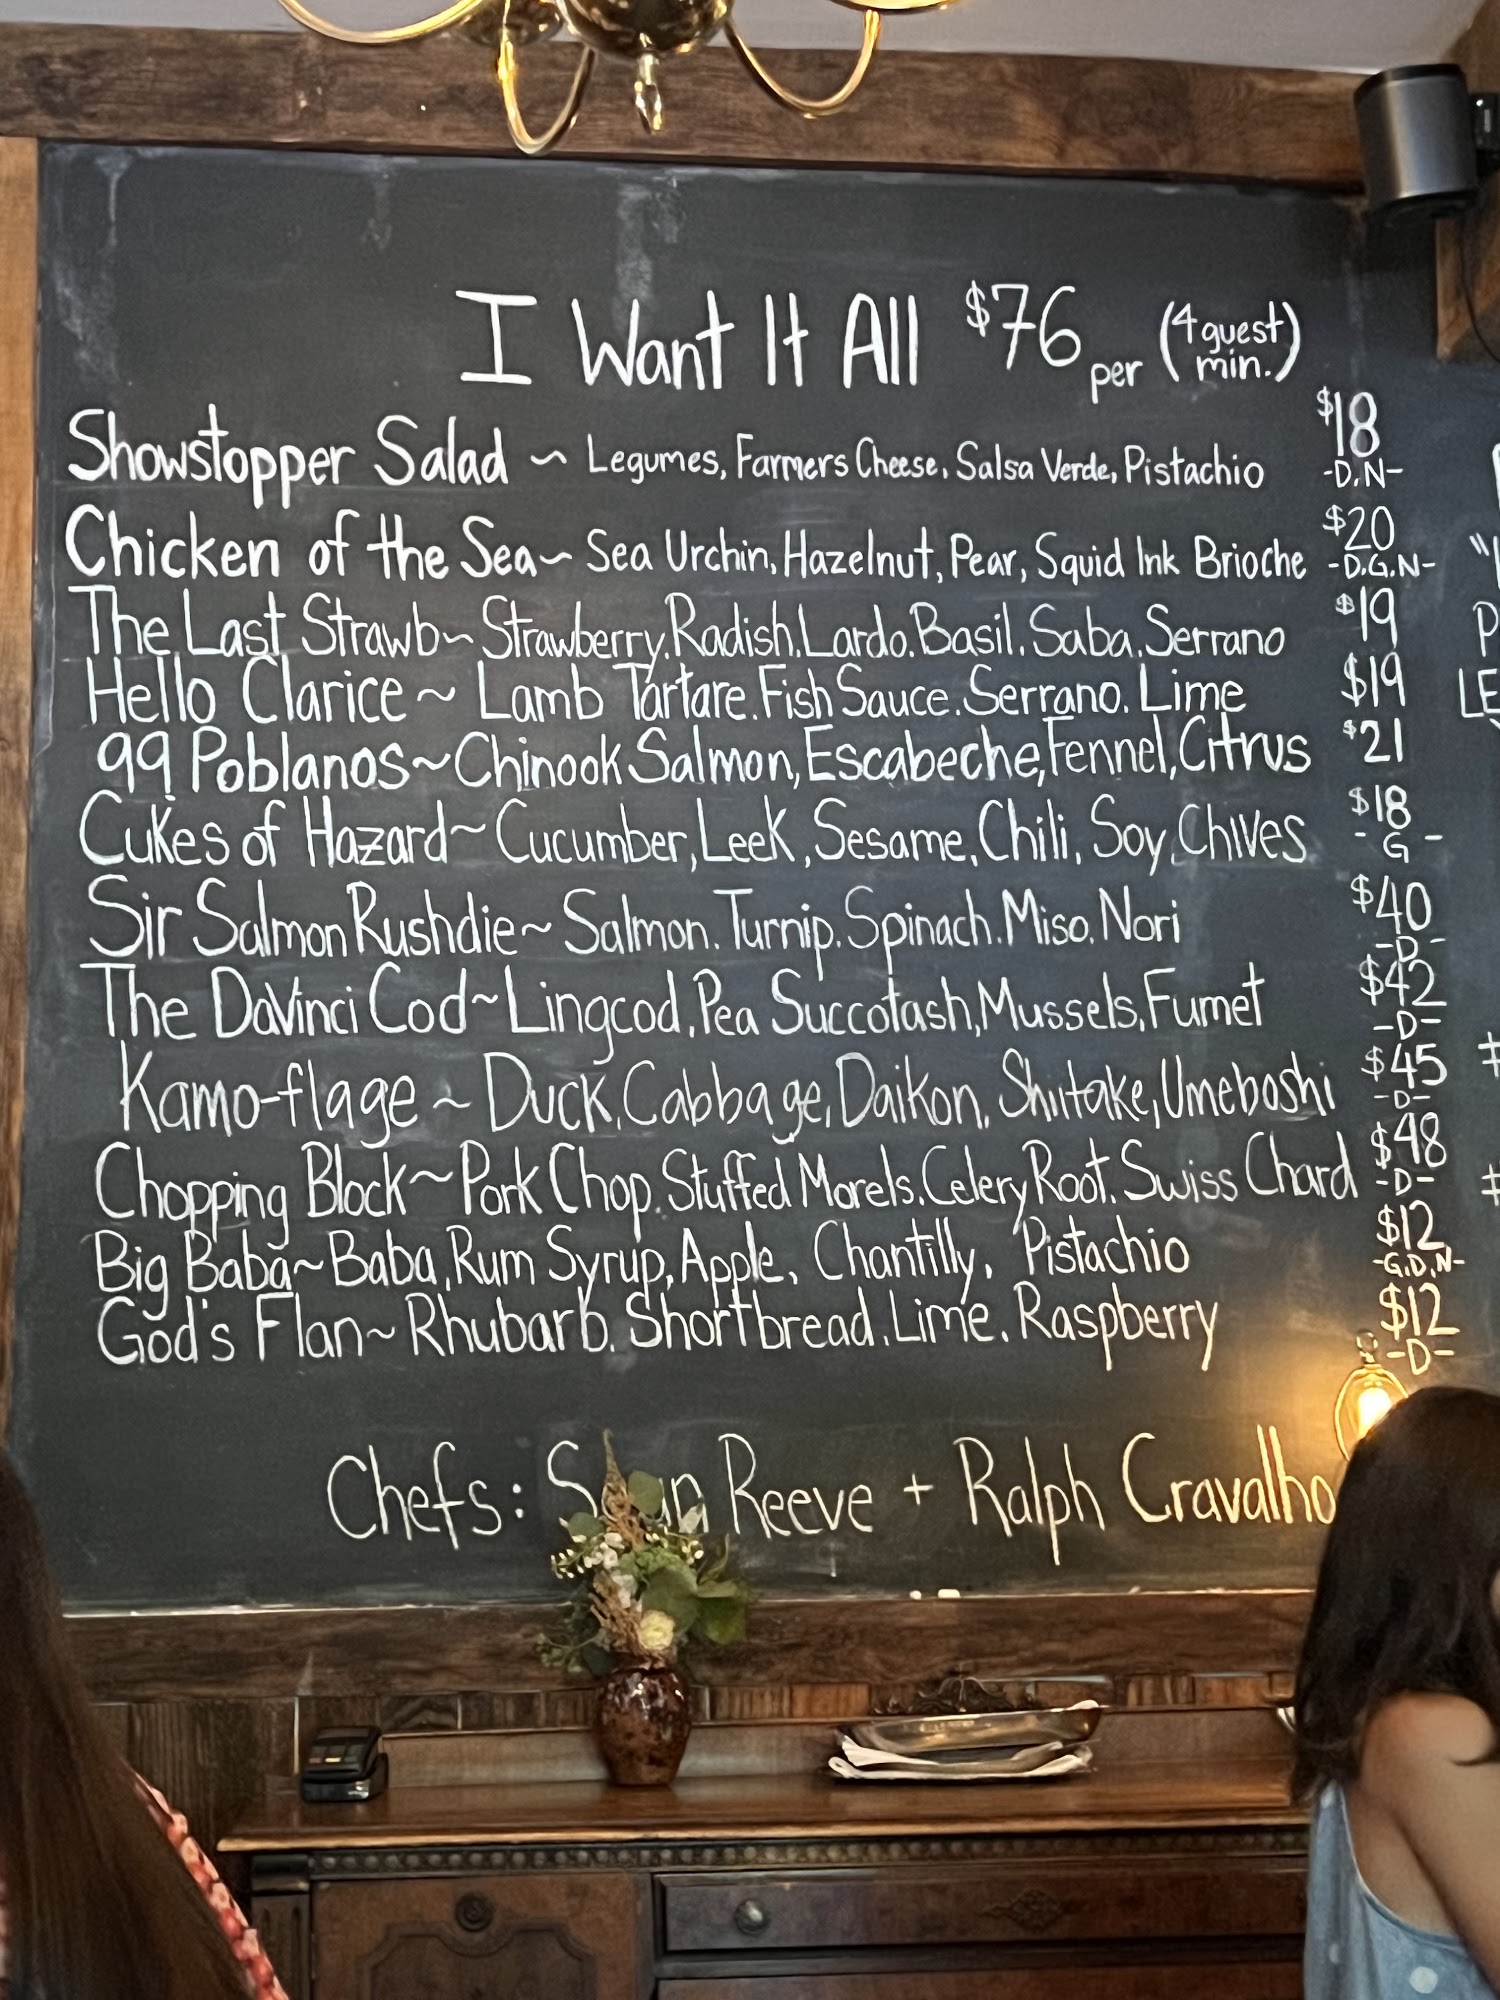 I Want It All $76 per (4 guest min.)
Showstopper Salad ~ Legumes, Farmers Cheese, Salsa Verde, Pistachio $18
-D.N-
Chicken of the Sea~ Sea Urchin, Hazelnut, Pear, Squid Ink Brioche $20
-D.G.N-
The Last Strawb~ Strawberry. Radish. Lardo. Basil. Saba. Serrano $19
Hello Clarice ~ Lamb Tartare. Fish Sauce. Serrano. Lime $19
99 Poblanos~Chinook Salmon, Escabeche, Fennel, Citrus $21
Cukes of Hazard~ Cucumber, Leek, Sesame, Chili, Soy, Chives $18
- G -
Sir Salmon Rushdie~ Salmon. Turnip. Spinach. Miso. Nori $40
-D-
The DaVinci Cod~Lingcod, Pea Succotash, Mussels, Fumet $42
-D-
Kamo-flage ~ Duck, Cabbage, Daikon, Shiitake, Umeboshi $45
-D-
Chopping Block~Pork Chop. Stuffed Morels. Celery Root. Swiss Chard $48
-D-
Big Baba~Baba, Rum Syrup, Apple, Chantilly, Pistachio $12
-G.D.N-
God's Flan~ Rhubarb. Shortbread. Lime. Raspberry $12
-D-
Chefs: Reeve + Ralph Cravalho